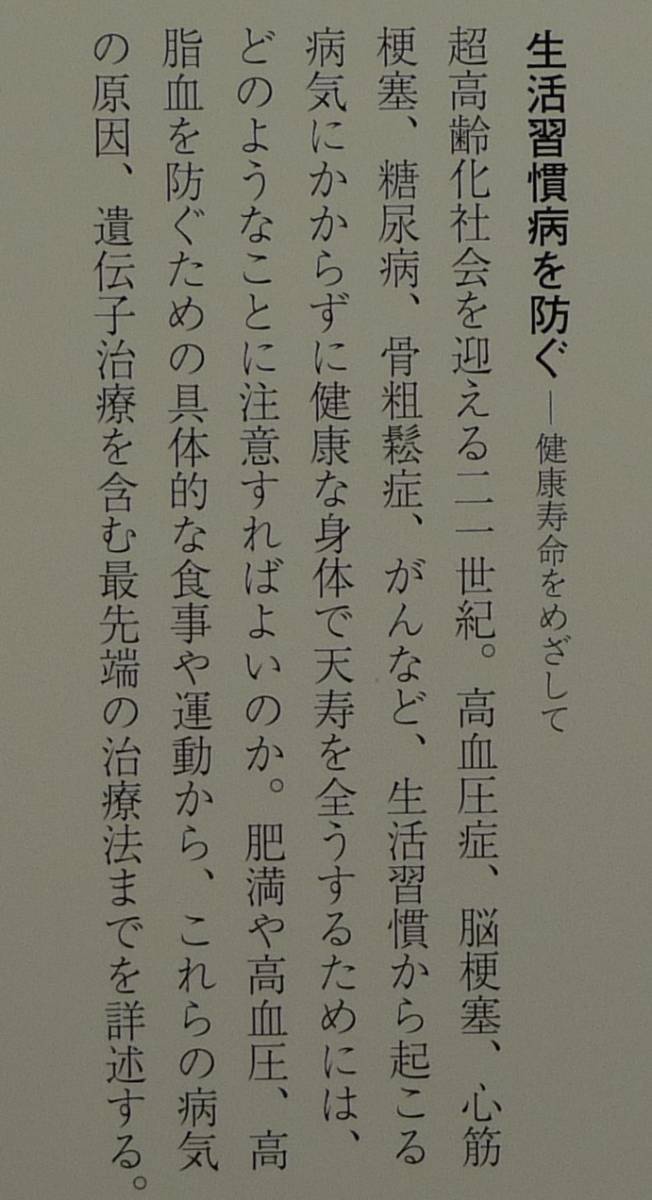 生活習慣病を防ぐ―健康寿命をめざして
超高齢化社会を迎える二一世紀。高血圧症、脳梗塞、心筋
梗塞、糖尿病、骨粗鬆症、がんなど、生活習慣から起こる
病気にかからずに健康な身体で天寿を全うするためには、
どのようなことに注意すればよいのか。肥満や高血圧、高
脂血を防ぐための具体的な食事や運動から、これらの病気
の原因、遺伝子治療を含む最先端の治療法までを詳述する。